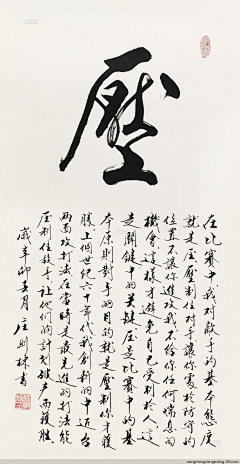 壓
在比賽中我对敵手的基本態度
就是压壓制住对手於防守的
位置不讓你進攻我不给你任何喘息的
機会這樣才避免自己受制於人這
是關鍵中的关键压是比賽中的基
本原則對手的目的就是壓制你才獲
勝上個世纪六十年代我創新的中近台
两面攻打法在當時是最先進的打法能
压制住敌手讓他们的計划破产而獲胜
歲辛卯月庄則棟書